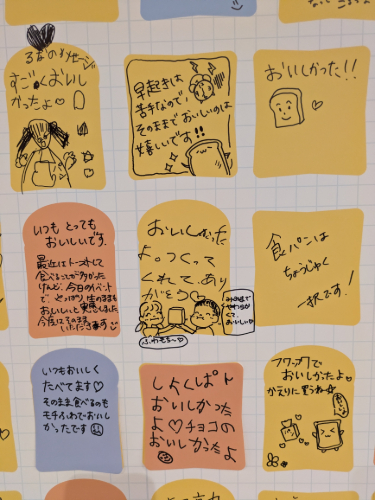 3才のメッセージ
すごくおいし
かったよ♡
早起きは
苦手なので、
そのままでおいしいのは
嬉しいです!!
おいしかった!!
♡
いつも とっても
おいしいです。
最近はトーストして
食べることが多かった
けれど、今日のイベント
で、やっぱり生のままも
おいしいと実感しました
今度はそのまま
いただきます
おいしかった
よ。つくって
くれて、あり
がとう♡
ふわもち〜♡
みみまで
やわらか
くて
おいしい♡
食パンは
ちょうじゃく
一択です!
いつもおいしく
たべてます♡
そのまま食べるのも
モチふわでおいし
かったです
しょくぱん
おいしかった
よ♡チョコの
おいしかったよ
フワッフワで
おいしかったよ♡
かえりに買うね☆